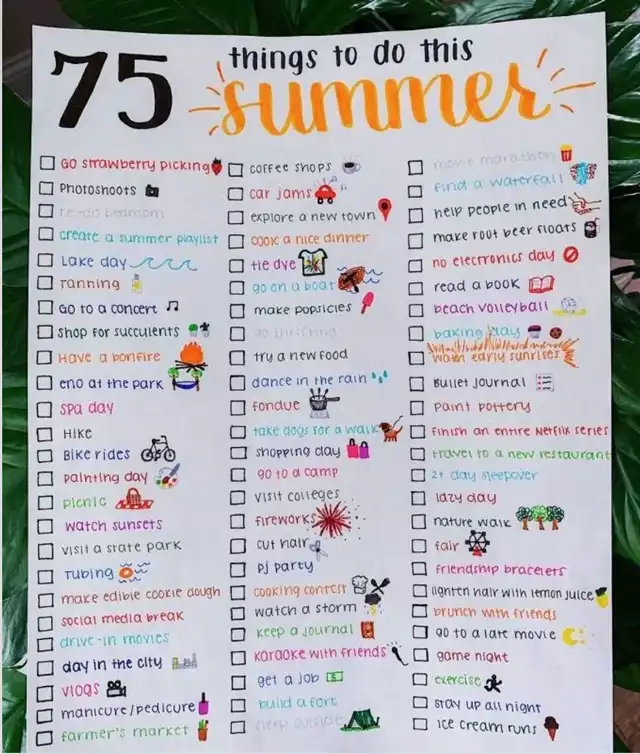 75 things to do this
summer
Go strawberry picking
Photoshoots
re-do bedroom
create a summer playlist
Lake day
Tanning
Go to a concert
Shop for succulents
Have a bonfire
eno at the park
spa day
Hike
Bike rides
painting day
picnic
watch sunsets
visit a state park
Tubing
make edible cookie dough
social media break
drive-in movies
day in the city
vlogs
manicure/pedicure
farmer's market
coffee shops
car jams
explore a new town
cook a nice dinner
tie dye
go on a boat
make popsicles
go thrifting
try a new food
dance in the rain
fondue
take dogs for a walk
shopping day
go to a camp
visit colleges
fireworks
cut hair
PJ party
cooking contest
watch a storm
keep a journal
karaoke with friends
get a job
build a fort
sleep outside
movie marathon
find a waterfall
help people in need
make root beer floats
no electronics day
read a book
beach volleyball
baking day
watch early sunrises
Bullet journal
paint pottery
finish an entire Netflix series
travel to a new restaurant
24 day sleepover
lazy day
nature walk
fair
friendship bracelets
lighten hair with lemon juice
brunch with friends
go to a late movie
game night
exercise
stay up all night
ice cream runs